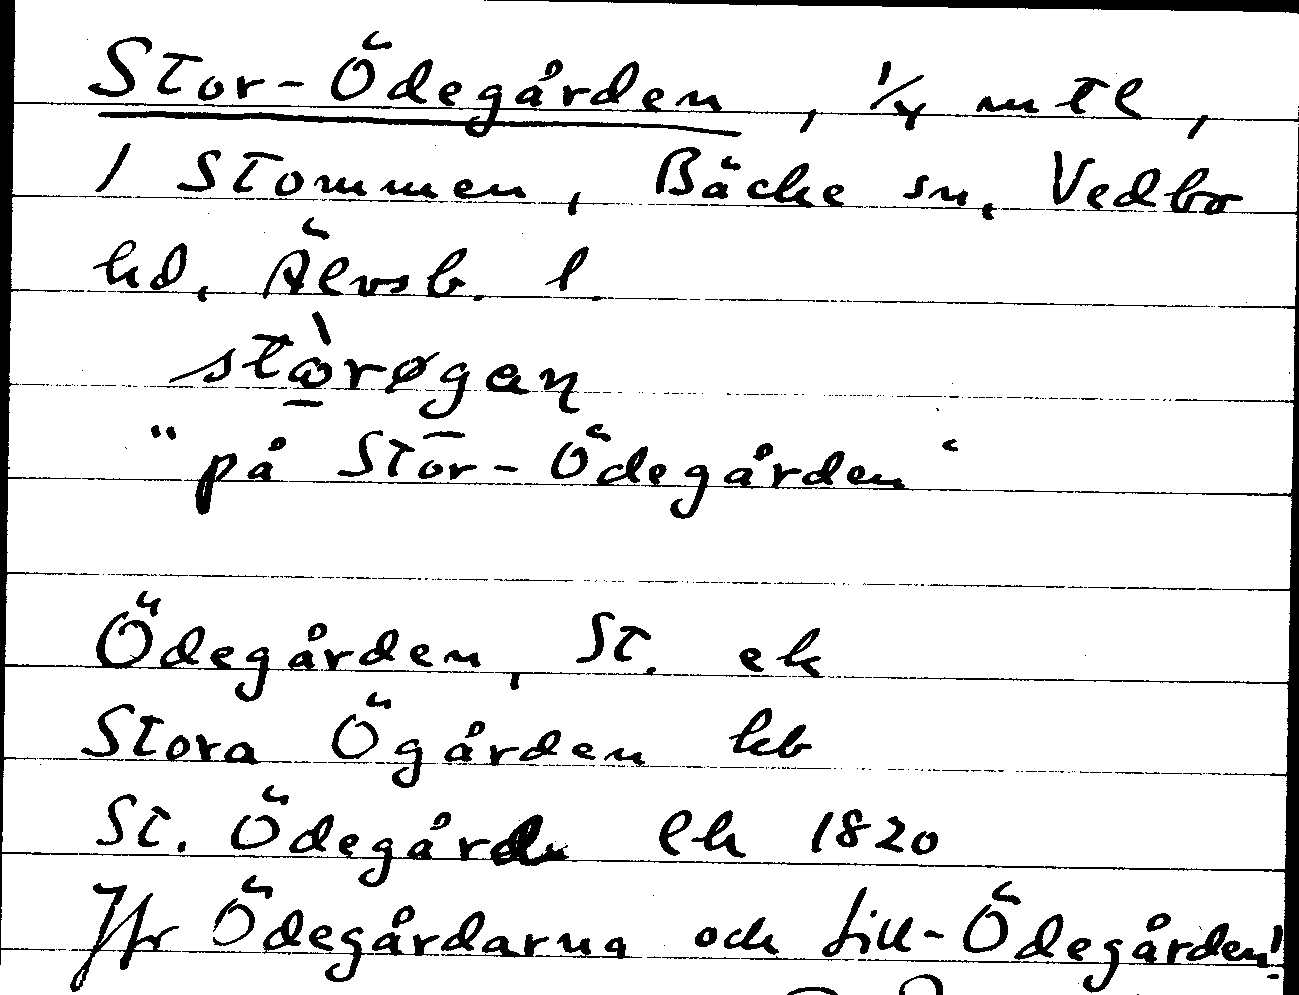 Stor-Ödegården, 1/4 mtl,
1 Stommen, Bäcke sn, Vedbo
hd, Älvsb. l.
stὼ̱røgaɳ
"på Stōr-Ödegården"
Ödegården, St. ek
Stora Ögården kb
St. Ödegård lk 1820
Jfr Ödegårdarna och Lill-Ödegården!